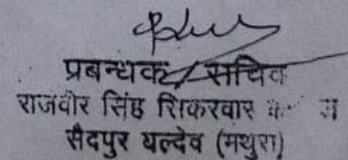 प्रबन्धक/सचिव
राजवीर सिंह सिकरवार
सैदपुर बल्देव (मथुरा)